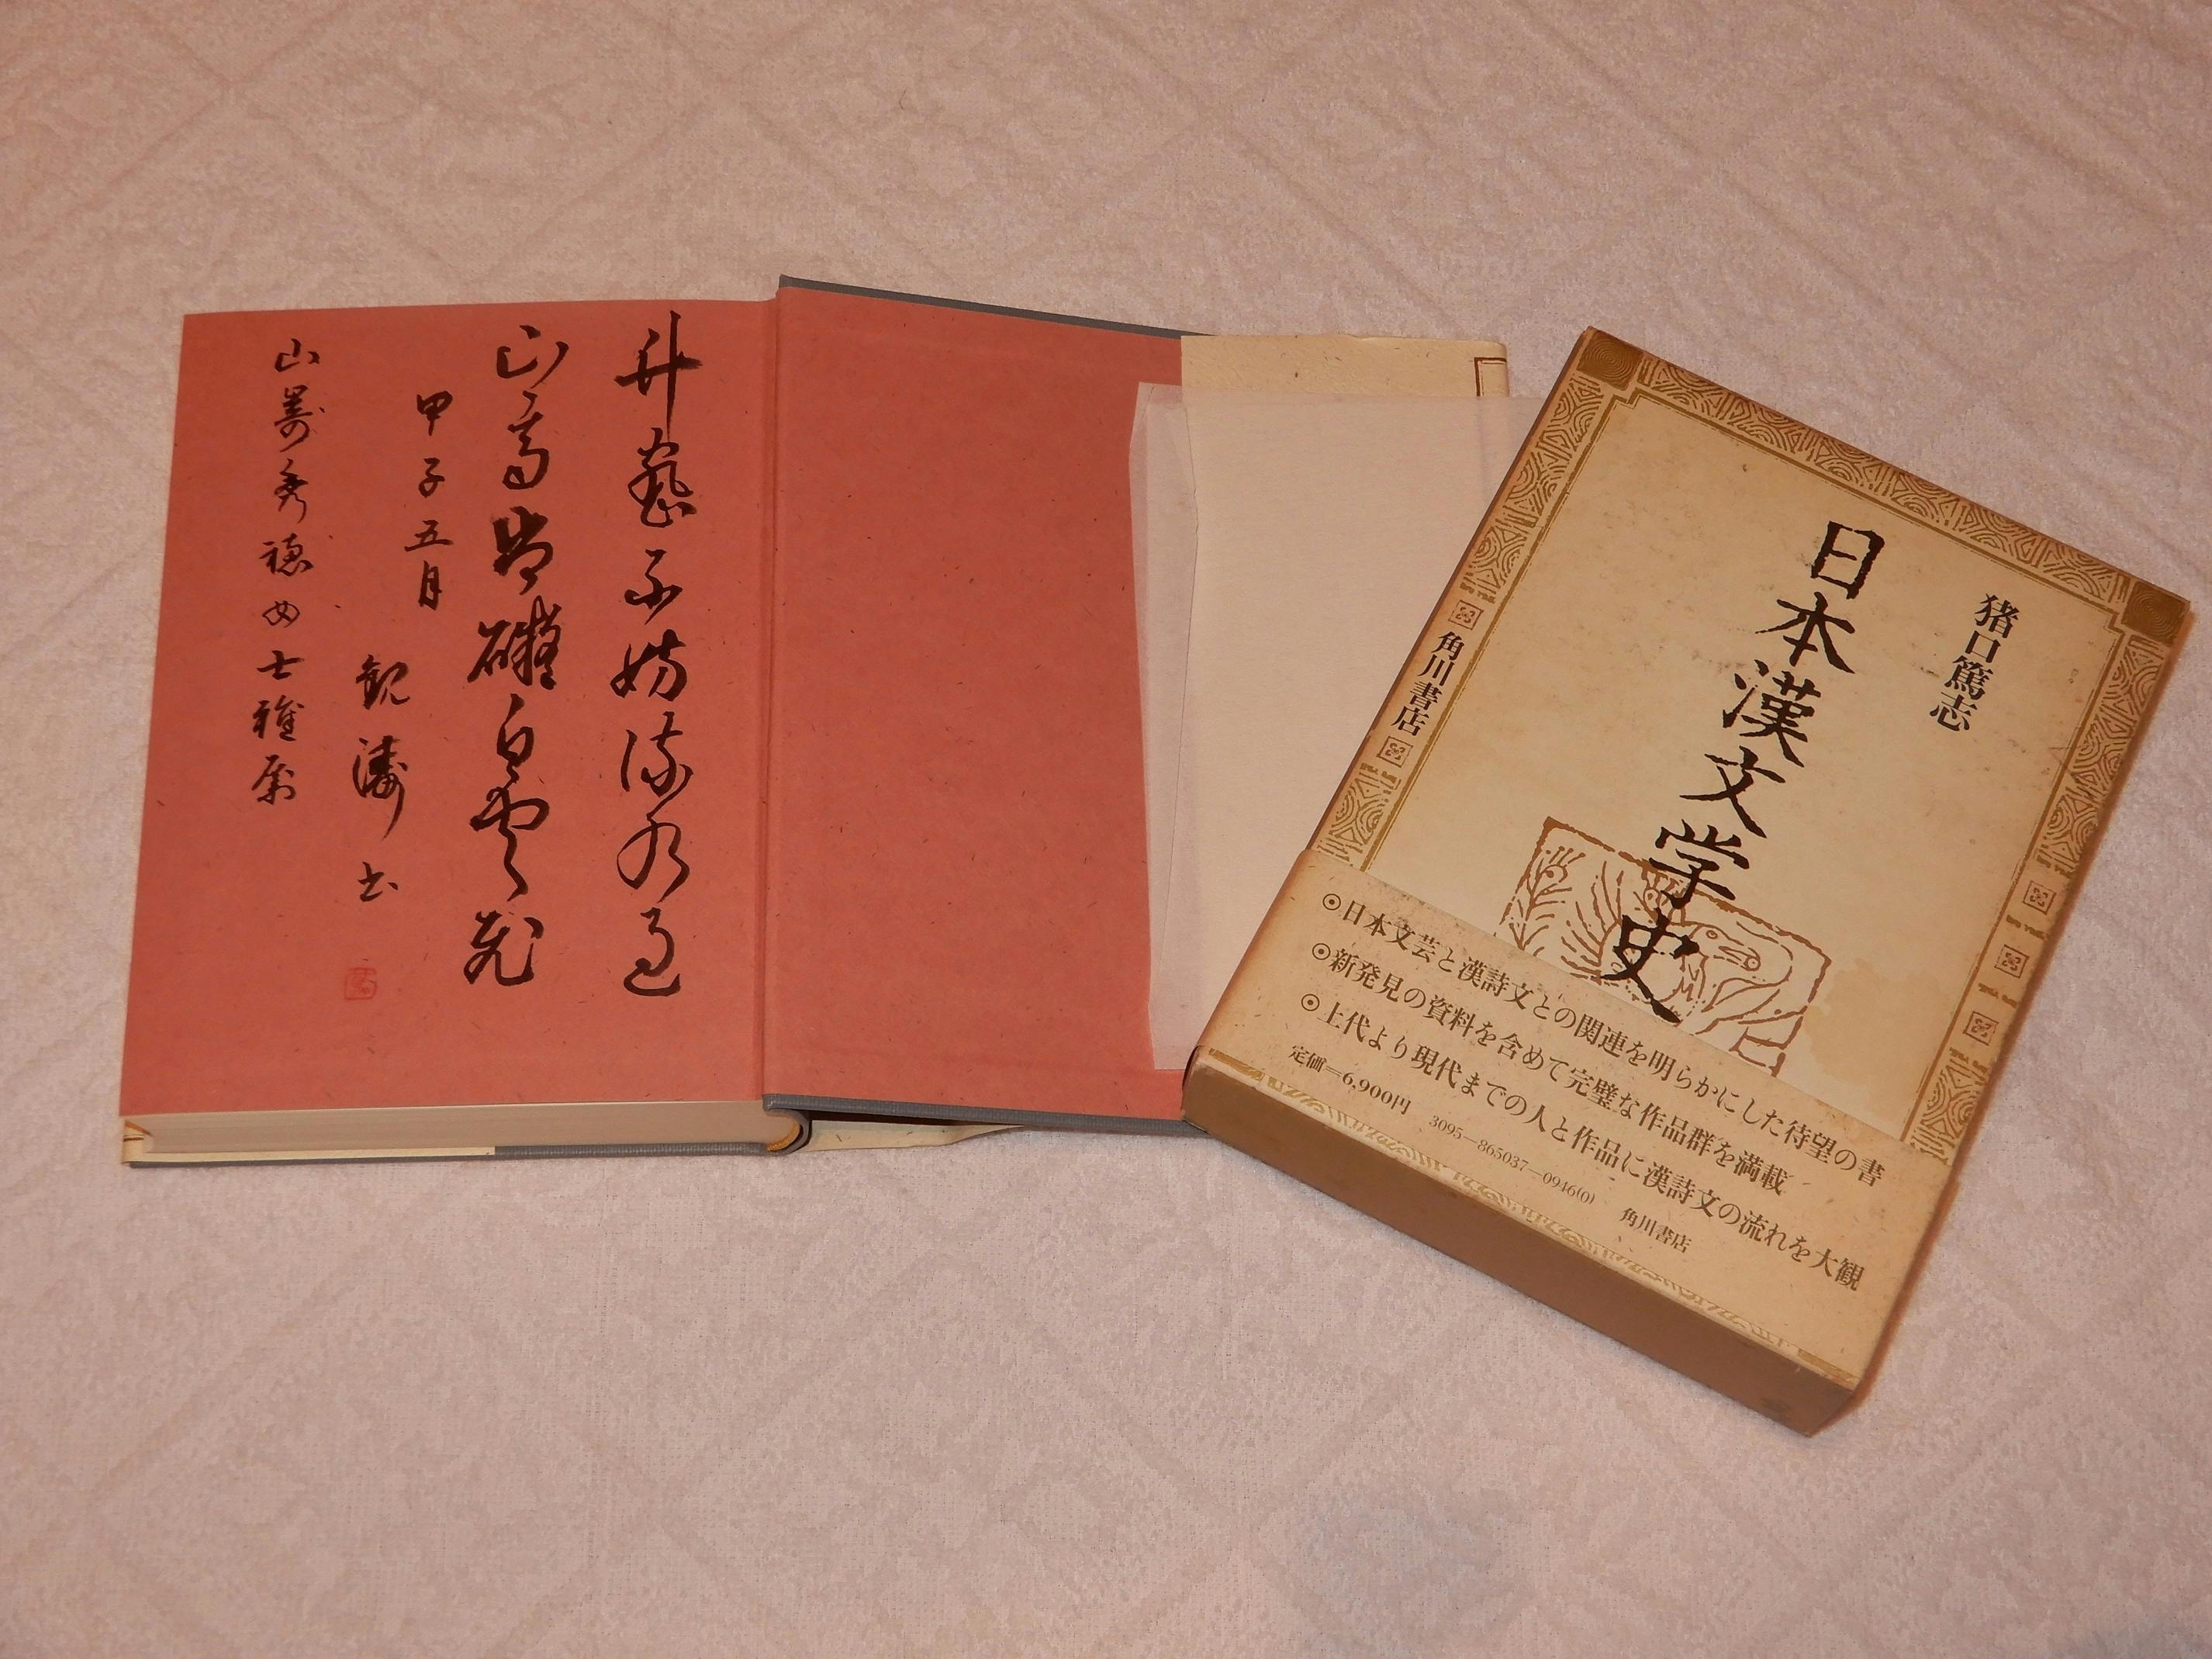 猪口篤志
日本漢文学史
角川書店
⦿日本文芸と漢詩文との関連を明らかにした待望の書
⦿新発見の資料を含めて完璧な作品群を満載
⦿上代より現代までの人と作品に漢詩文の流れを大観
定価=6,900円 3095-865037-0946(0) 角川書店
竹密不妨流水過
山高豈礙白雲飛
甲子五月
観濤書
山嵜秀穂女士雅属